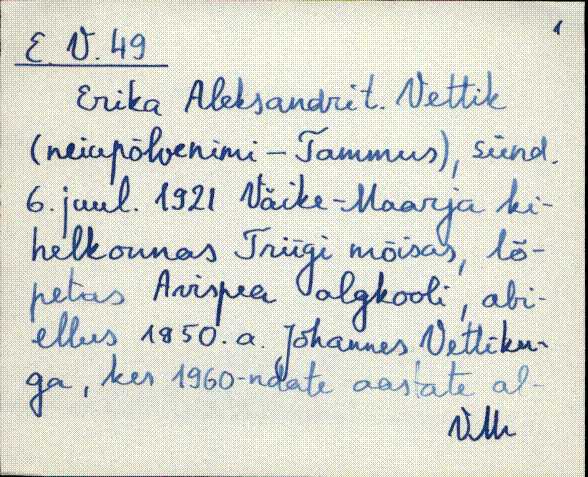 1
E. V. 49
Erika Aleksandri t. Vettik
(neiupõlvenimi – Tammus), sünd.
6. juul. 1921 Väike-Maarja ki-
helkonnas Triigi mõisas, lõ-
petas Avispea algkooli, abi-
ellus 1850. a. Johannes Vettiku-
ga, kes 1960-ndate aastate al-